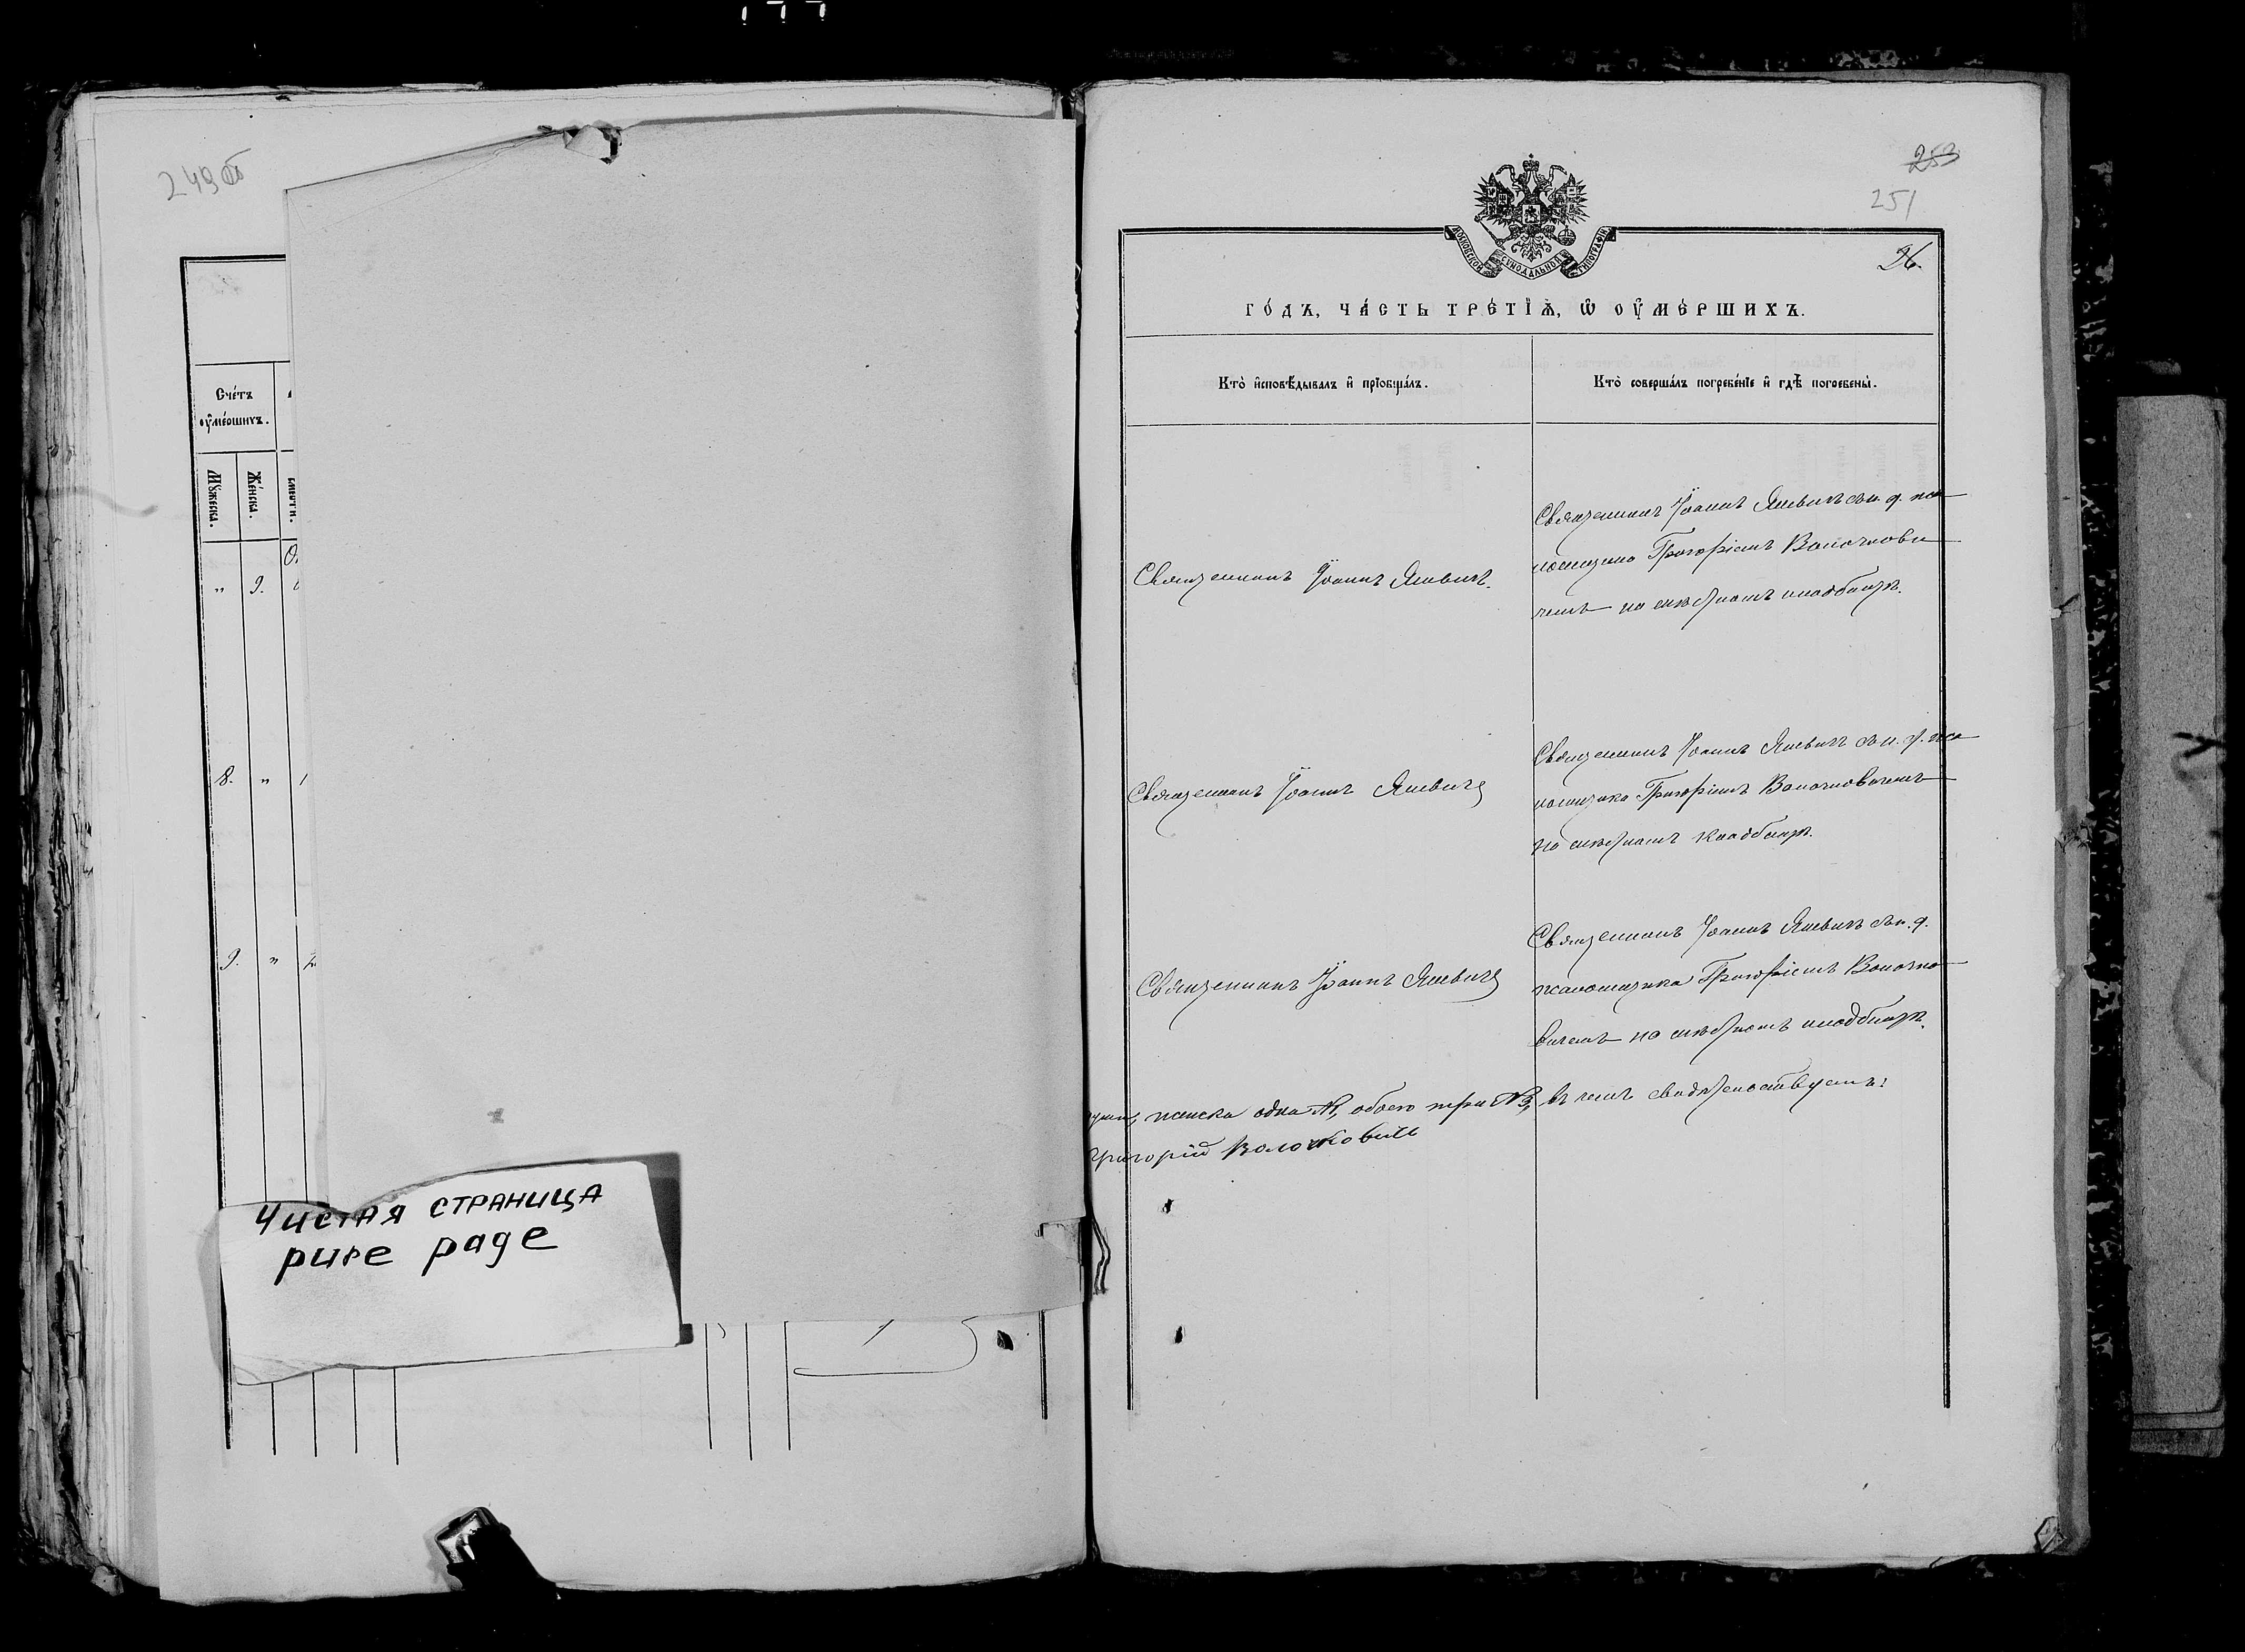 249 об
Счетъ
оумершихъ.
Мужеска.
Женска.
" 9.
8. "
9. "
Чистая страница
pure page
253
251
Московской Сѵнодальной Типографіи
26.
Годъ, часть третїѧ, ѡ оумершихъ.
Кто исповѣдывалъ и прїобщалъ.
Кто совершалъ погребенїе и гдѣ погребены.
Священникъ Іоаннъ Яневичъ.
Священникъ Іоаннъ Яневичъ съ и. д. пса
ломщика Григоріемъ Волочкови
чемъ на мѣстномъ кладбищѣ.
Священникъ Іоаннъ Яневичъ
Священникъ Іоаннъ Яневичъ съ и. д. пса
ломщика Григоріемъ Волочковичемъ
на мѣстномъ кладбищѣ.
Священникъ Іоаннъ Яневичъ
Священникъ Іоаннъ Яневичъ съ и. д.
псаломщика Григоріемъ Волочко
вичемъ на мѣстномъ кладбищѣ.
женска одна №1, обоего три №3, въ чемъ свидѣтельствуемъ:
Григорій Волочковичъ